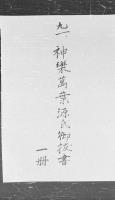 九一、神樂萬葉源氏御抜書
一冊